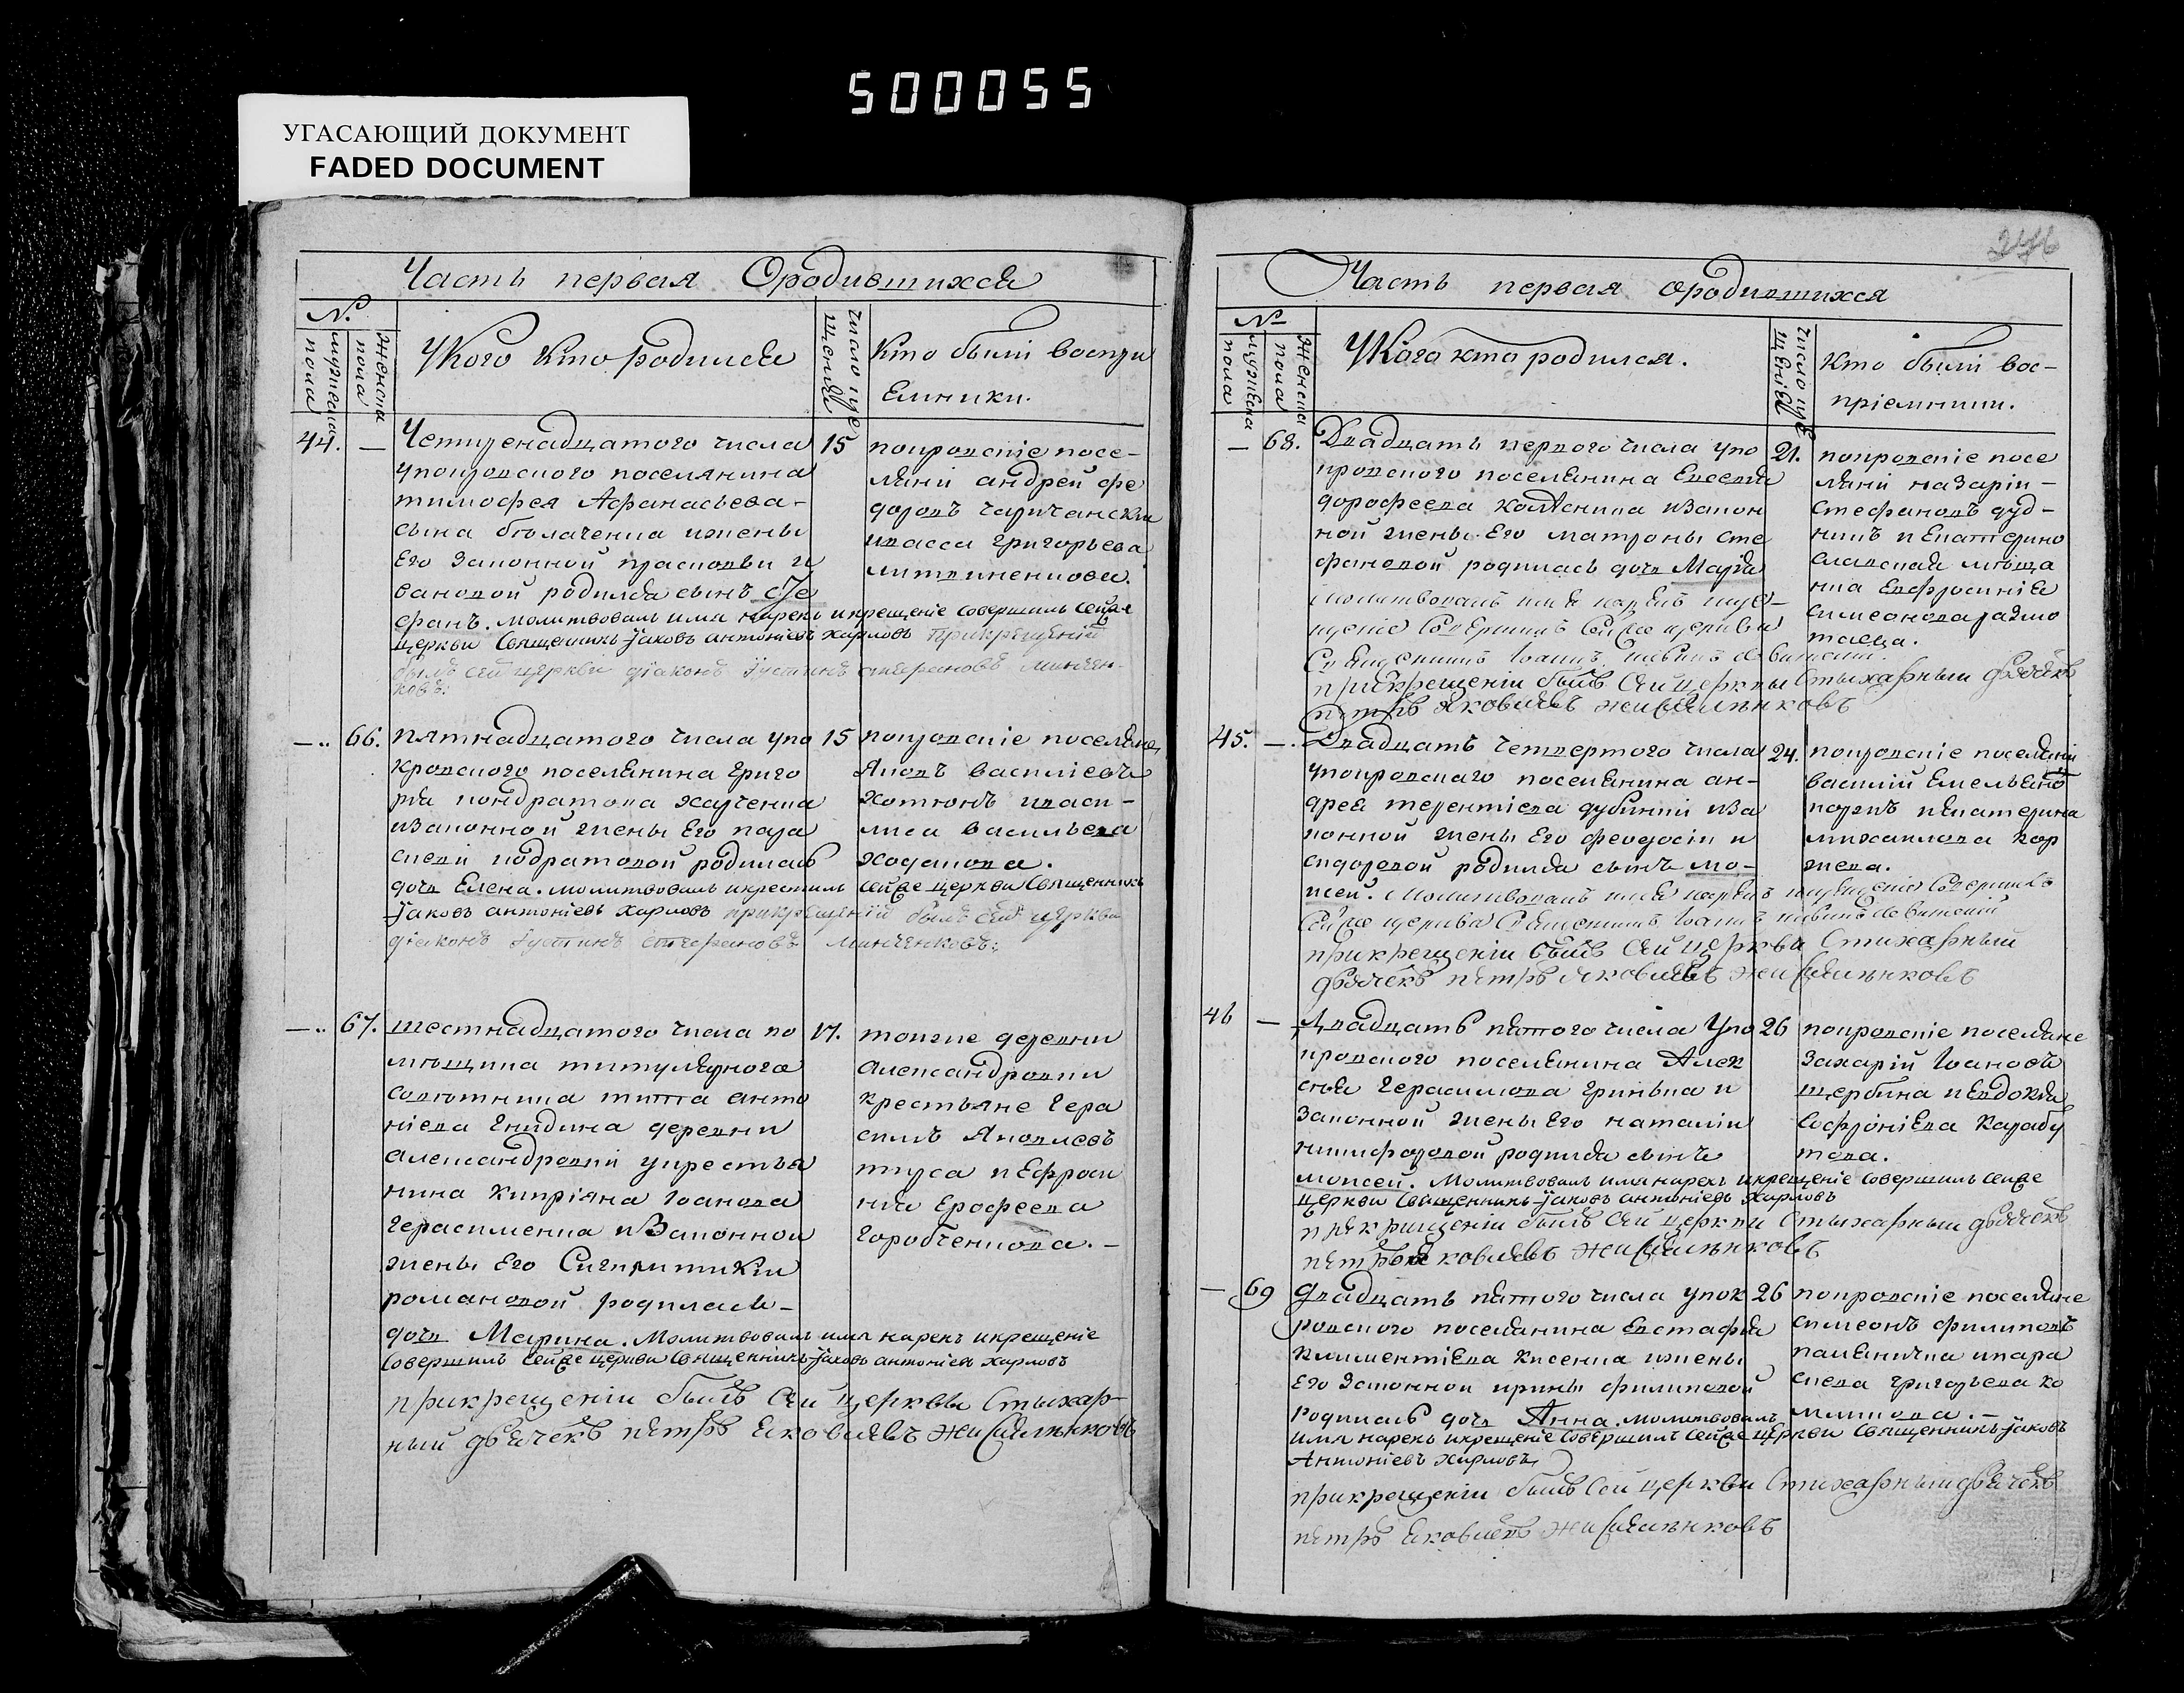 500055
УГАСАЮЩИЙ ДОКУМЕНТ
FADED DOCUMENT
Часть первая Ородившихся
№
мужеска пола
женска пола
Укого кто родился
число кре
щения
Кто были воспри
емники.
44. — Четыренадцатого числа 15
упокровского поселянина
тимофея Афанасьева
сына бѣлаченка ижены
Его законной прасковьи и
вановой родился сынъ Сте
фанъ. молитвовалъ имя нарекъ икрещеніе совершилъ сейже
церкви Священникъ Іаковъ антоніевъ харловъ прикрещеніи
былъ сей церкви діаконъ Іустинъ стефановъ минчен-
ковъ:
покровскіе посе-
ляни андрей фе
доровъ
ивасса григорьева
литвиненкова.
— 66. пятнадцатого числа упо 15
кровского поселянина григо
рія кондратова харченка
изаконной жены Его пара
скеви кодратовой родилась
дочь Елена. молитвовалъ икрестилъ сейже церкви Священникъ
Іаковъ антоніевъ харловъ прикрещеніи былъ сей церкви
діаконъ Іустинъ стефановъ минченковъ:
покровскіе поселяне
Яковъ василіевъ
хотюнъ иваси-
лиса васильева
ходакова.
— 67. шестнадцатого числа по 17.
мѣщика титулярнога
совѣтника титта анто
ніева Гнидина деревни
александровки укрестья
нина кипріяна Іоанова
Герасименка изаконной
жены Его
романовой родилась
дочь Марина. Молитвовалъ имя нарекъ икрещеніе
совершилъ сейже церкви Священникъ Іаковъ антоніевъ харловъ
прикрещеніи былъ сей церквы Стыхар-
ный дьячекъ петръ яковлевъ
тоиже деревни
александровки
крестьяне Гера
симъ Яковлевъ
туса иЕфроси
нія Ерофеева
горобченкова. —
246
Часть первая ородившихся
№
мужеска пола
женска пола
Укого кто родился.
число кре
щеніе
Кто были вос-
пріемники.
— 68. Двадцать первого числа упо 21.
кровского поселянина Евсевія
дорофеева изакон
ной жены Его матроны сте
фановой родилась дочь Марія
молитвовалъ имя нарекъ икре-
щеніе Совершилъ Сейже церкви
Священникъ Іоаннъ
прикрещеніи былъ Сей церквы Стыхарный дьячекъ
петръ яковлевъ
покровскіе посе
ляни назарій
Стефановъ дуд-
никъ иЕкатерино
славская мѣща
нка Евфросинія
симеонова
45. — Двадцать четвертого числа 24.
упокровскаго поселянина ан-
дрея терентіева дубинки иза
конной жены Его феодосіи и
сидоровой родился сынъ мо-
исей. Молитвовалъ имя нарекъ икрещеніе Совершилъ
Сейже церкви Священникъ Іоаннъ
прикрещеніи былъ Сей церквы Стихарный
дьячекъ петръ яковлевъ
покровскіе поселяни
василій Емельяно
иЕкатерина
михаилова кор
жева.
46 — Двадцать пятого числа Упо 26
кровского поселянина Алек
сѣя Герасимова Гринька и
законной жены Его наталіи
никифоровой родился сынъ
моисей. Молитвовалъ имя нарекъ икрещеніе совершилъ сейже
церкви Священникъ Іаковъ антоніевъ Харловъ
прикрещеніи былъ Сей церкви Стыхарный дьячекъ
петръ яковлевъ
покровскіе поселяне
Захарій Іоановъ
щербина иЕвдокія
Софроніева карабу
това.
— 69 Двадцать пятого числа упок 26
ровского поселянина Евстафія
климентіева кисенка ижены
Его законной ирины филиповой
родилась дочь Анна. молитвовалъ
имя нарекъ икрещеніе совершилъ сейже церкви Священникъ Іаковъ
Антоніевъ харловъ
прикрещеніи былъ Сей церкви Стихарный дьячекъ
петръ яковлевъ
покровскіе поселяне
симеонъ филиповъ
ипара
скева григорьева ко